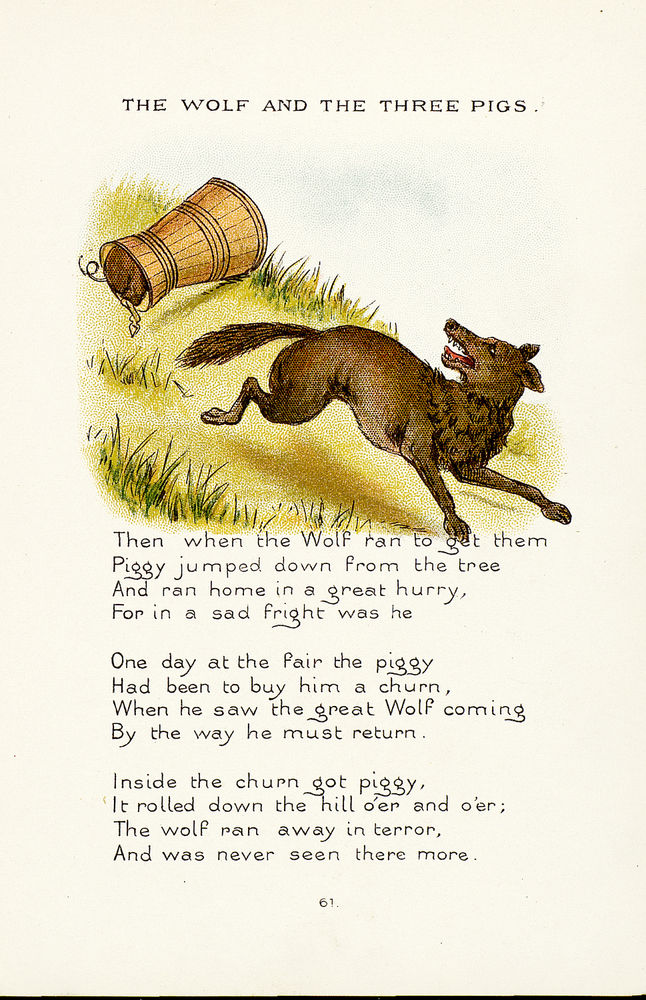 THE WOLF AND THE THREE PIGS.
Then when the Wolf ran to get them
Piggy jumped down from the tree
And ran home in a great hurry,
For in a sad fright was he
One day at the fair the piggy
Had been to buy him a churn,
When he saw the great Wolf coming
By the way he must return.
Inside the churn got piggy,
It rolled down the hill o'er and o'er;
The wolf ran away in terror,
And was never seen there more.
61.